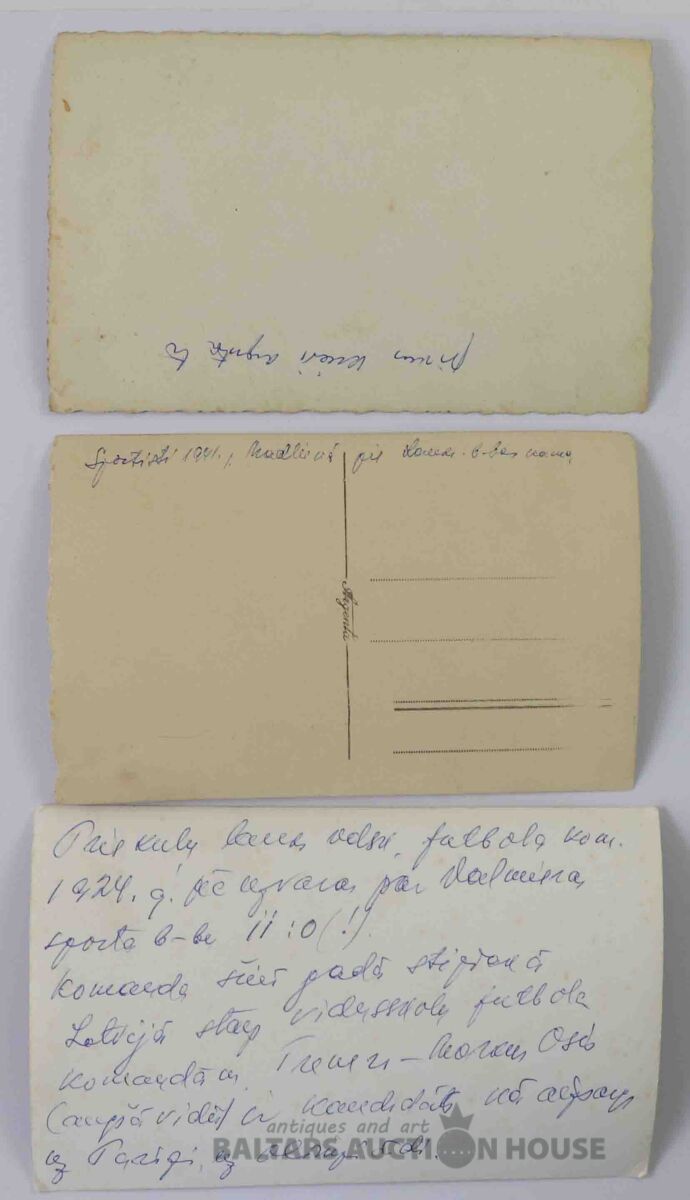 Sportisti 1941., Madlienā pie Lauks. b-bas nama
Argenta
Priekuļu lauks. vidsk. futbola kom.
1924. g. pēc uzvaras par Valmieras
sporta b-bu 11:0 (!).
Komanda šinī gadā stiprākā
Latvijā starp vidusskolu futbola
komandām. Treneris – Osis
(augšā vidū) ir kandidāts kā
uz Parīzi, uz
antiques and art
BALTARS AUCTION HOUSE